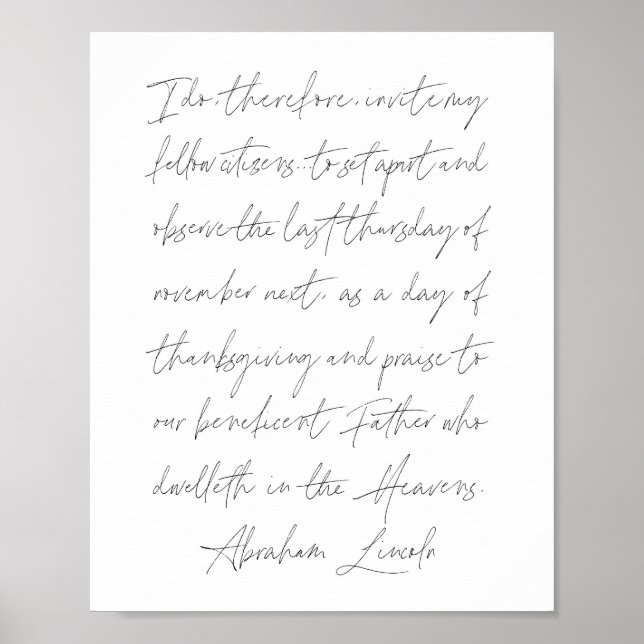 I do, therefore, invite my
fellow citizens...to set apart and
observe the last thursday of
november next, as a day of
thanksgiving and praise to
our beneficent Father who
dwelleth in the Heavens.
Abraham Lincoln